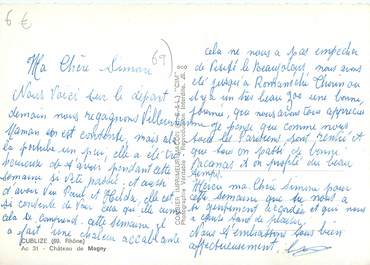 6 €
69)
Ma Chère Simone
Nous Voici sur le départ
demain nous regagnons
Maman est contente, mais
la perturbe un peu, elle a été très
heureuse de avoir pendant cette
semaine si vite passée; et aussi
d'avoir Vu Paul et Hilda, elle est
si contente de Voir ceux qu'elle aime
cela se comprend. cette semaine il
a fait une chaleur accablante
CUBLIZE (69. Rhône)
Ac 31 - Château de Magny
COMBIER IMPRIMEUR MACON (S.-et-L.) "CIM"
Photographie Véritable - Reproduction Interdite
cela ne nous a pas empêcher
de visiter le Beaujolais, nous avons
été jusqu'à Romanèche Thorin ou
il y a un très beau Zoo une bonne
journée, que nous avons tous apprécié
Je pense que comme nous
tous les Parisiens sont rentrés et
que tous ont passé de bonne
Vacances et on profité du beau
temps.
Merci ma Chère Simone pour
cette semaine que tu nous a
si gentiment accordée et que nous
a causé tant de plaisir.
Nous t'embrassons tous bien
affectueusement.